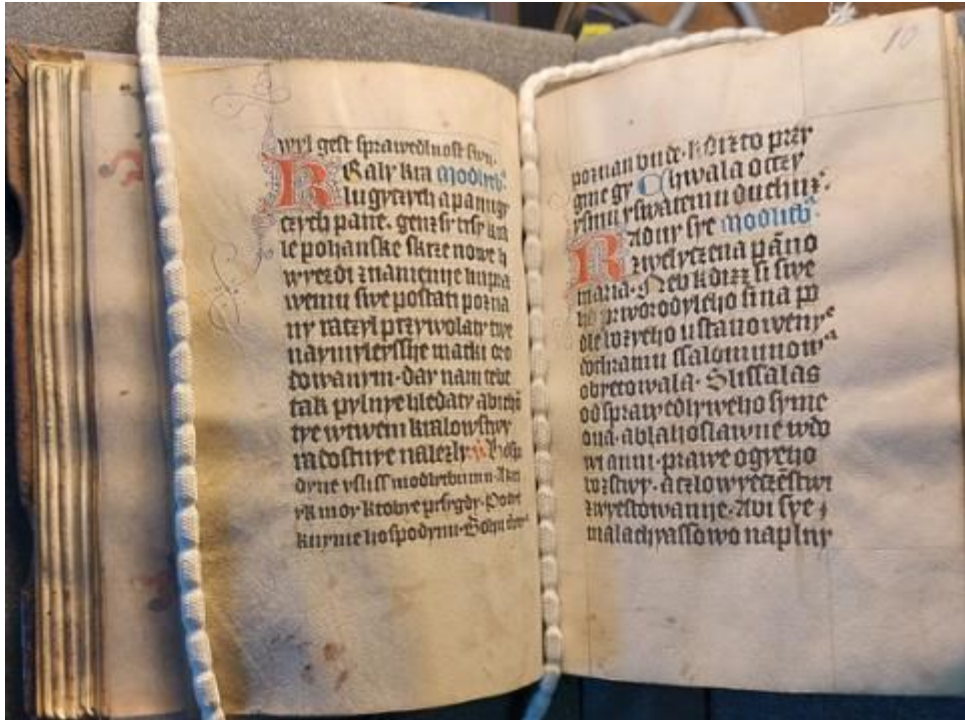 wyl gest sprawedlnost swu.
Kraly kra modlytb
lugytych apanugy
cych pane. genz sy trzy kra
le pohanske skrze nowe h
wyezdi znamenye kupra
wemu swe postati pozna
ny raczyl przywolaty twe
naymyleyssye matki
towanym. day nam tebe
tak pylnye hledaty abicho
tye wtwem kralowstwy
radostnye nalezly. ў hospo
dyne usliss modlytbu mu. A krz
yk moy ktobye przygdy. Podie
kuyme hospodynu. Bohu
10
poznan bude. Kdizto przy
gme gy Chwala otczy
ysinu yswatemu duchu.
Raduy sye modlitb
zwelyczena panno
maria. Neb kdizz si swe
ho prworodyleho sina po
dle bozyeho ustanoweny
dochramu ssalomunow
obyetowala. Slissalas
od sprawedlyweho syme
ona. ablahoslawne wdo
wi anni. prawe ogyeho
bozstwy. aczlowyeczenstwi
zwyestowanye. Abi sye
malachyassowo naplny